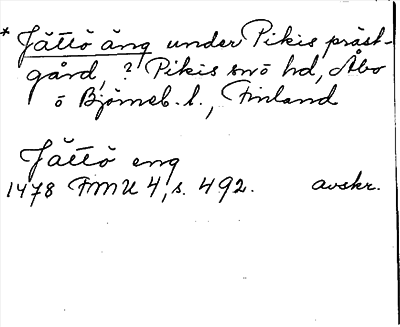 * Jättö äng under Pikis präst-
gård, ? Pikis snö hd, Åbo
ö Björneb. l., Finland
Jättö eng
1478 FMU 4, s. 492. avskr.